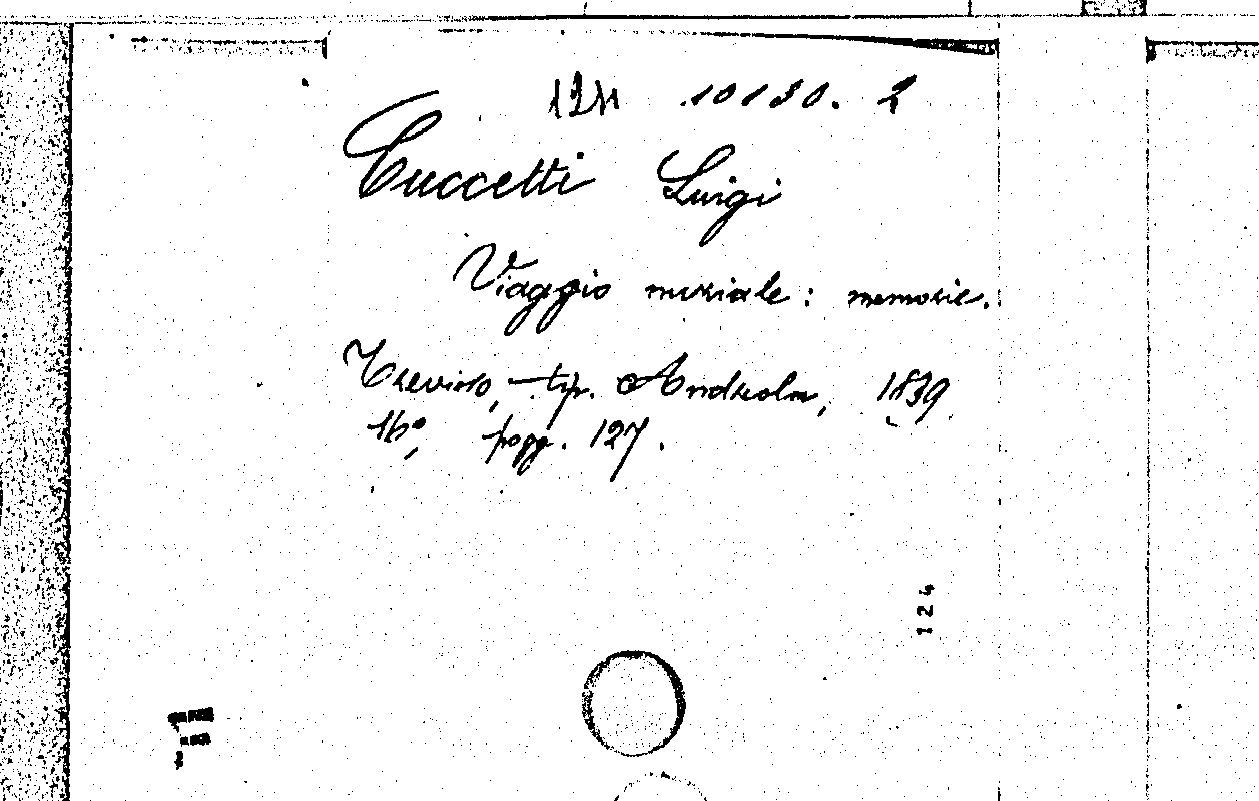 10130. 2
Cuccetti Luigi
Viaggio nuziale: memorie.
Treviso, tip. Andreola, 1839
16º, pagg. 127.
124